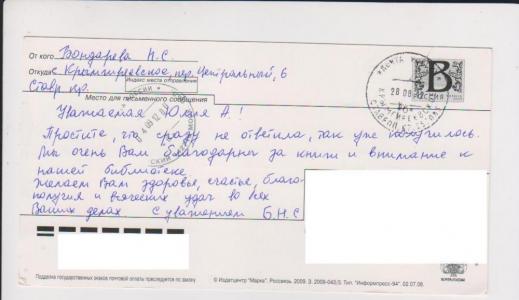 От кого Бондарева Н.С.
Откуда с. Крымгиреевское, пер. Центральный, 6
Индекс места отправления
Ставр. кр.
Место для письменного сообщения
Уважаемая Юлия А.!
Простите, что сразу не ответила, так уж получилось.
Мы очень Вам благодарны за книги и внимание к
нашей библиотеке.
Желаем Вам здоровья, счастье, благо-
получия и всяческих удач во всех
Ваших делах. С уважением Б.Н.С
B
РОССИЯ
28 08
Подделка государственных знаков почтовой оплаты преследуется по закону
© Издатцентр "Марка". Россвязь. 2009. З. 2009-043/5. Тип. "Информпресс-94". 02.07.09.